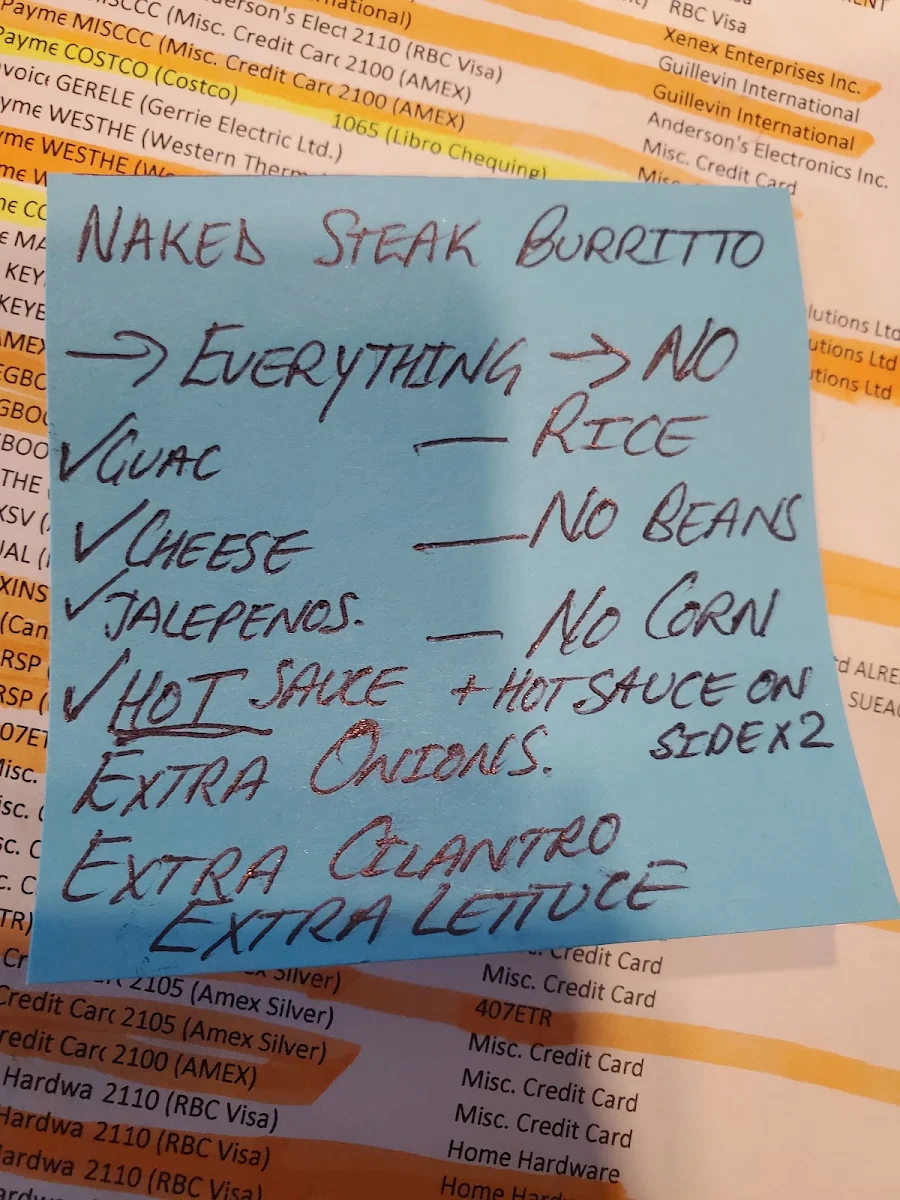 ational)
MISCCC (Misc. Credit Carc 2100 (AMEX)
erson's Elect 2110 (RBC Visa)
RBC Visa
Payme MISCCC (Misc. Credit Carc 2100 (AMEX)
Xenex Enterprises Inc.
Payme COSTCO (Costco)
1065 (Libro Chequing)
Guillevin International
nvoice GERELE (Gerrie Electric Ltd.)
Guillevin International
yme WESTHE (Western Therm
Anderson's Electronics Inc.
yme WESTHE (We
Misc. Credit Card
NAKED STEAK BURRITTO
→ EVERYTHING → NO
✓GUAC — RICE
✓CHEESE — NO BEANS
✓JALEPENOS. — NO CORN
✓HOT SAUCE + HOT SAUCE ON
SIDE X2
EXTRA ONIONS.
EXTRA CILANTRO
EXTRA LETTUCE
KEYE
AMEX
THE
XINS
(Can
RSP
RSP (
07ET
lutions Ltd
utions Ltd
tions Ltd
d ALRE
SUEA
Credit Card
Misc. Credit Card
2105 (Amex Silver)
407ETR
Credit Carc 2105 (Amex Silver)
Misc. Credit Card
redit Carc 2100 (AMEX)
Misc. Credit Card
Hardwa 2110 (RBC Visa)
Misc. Credit Card
Hardwa 2110 (RBC Visa)
Home Hardware
ardwa 2110 (RBC Visa)
Home Hardware